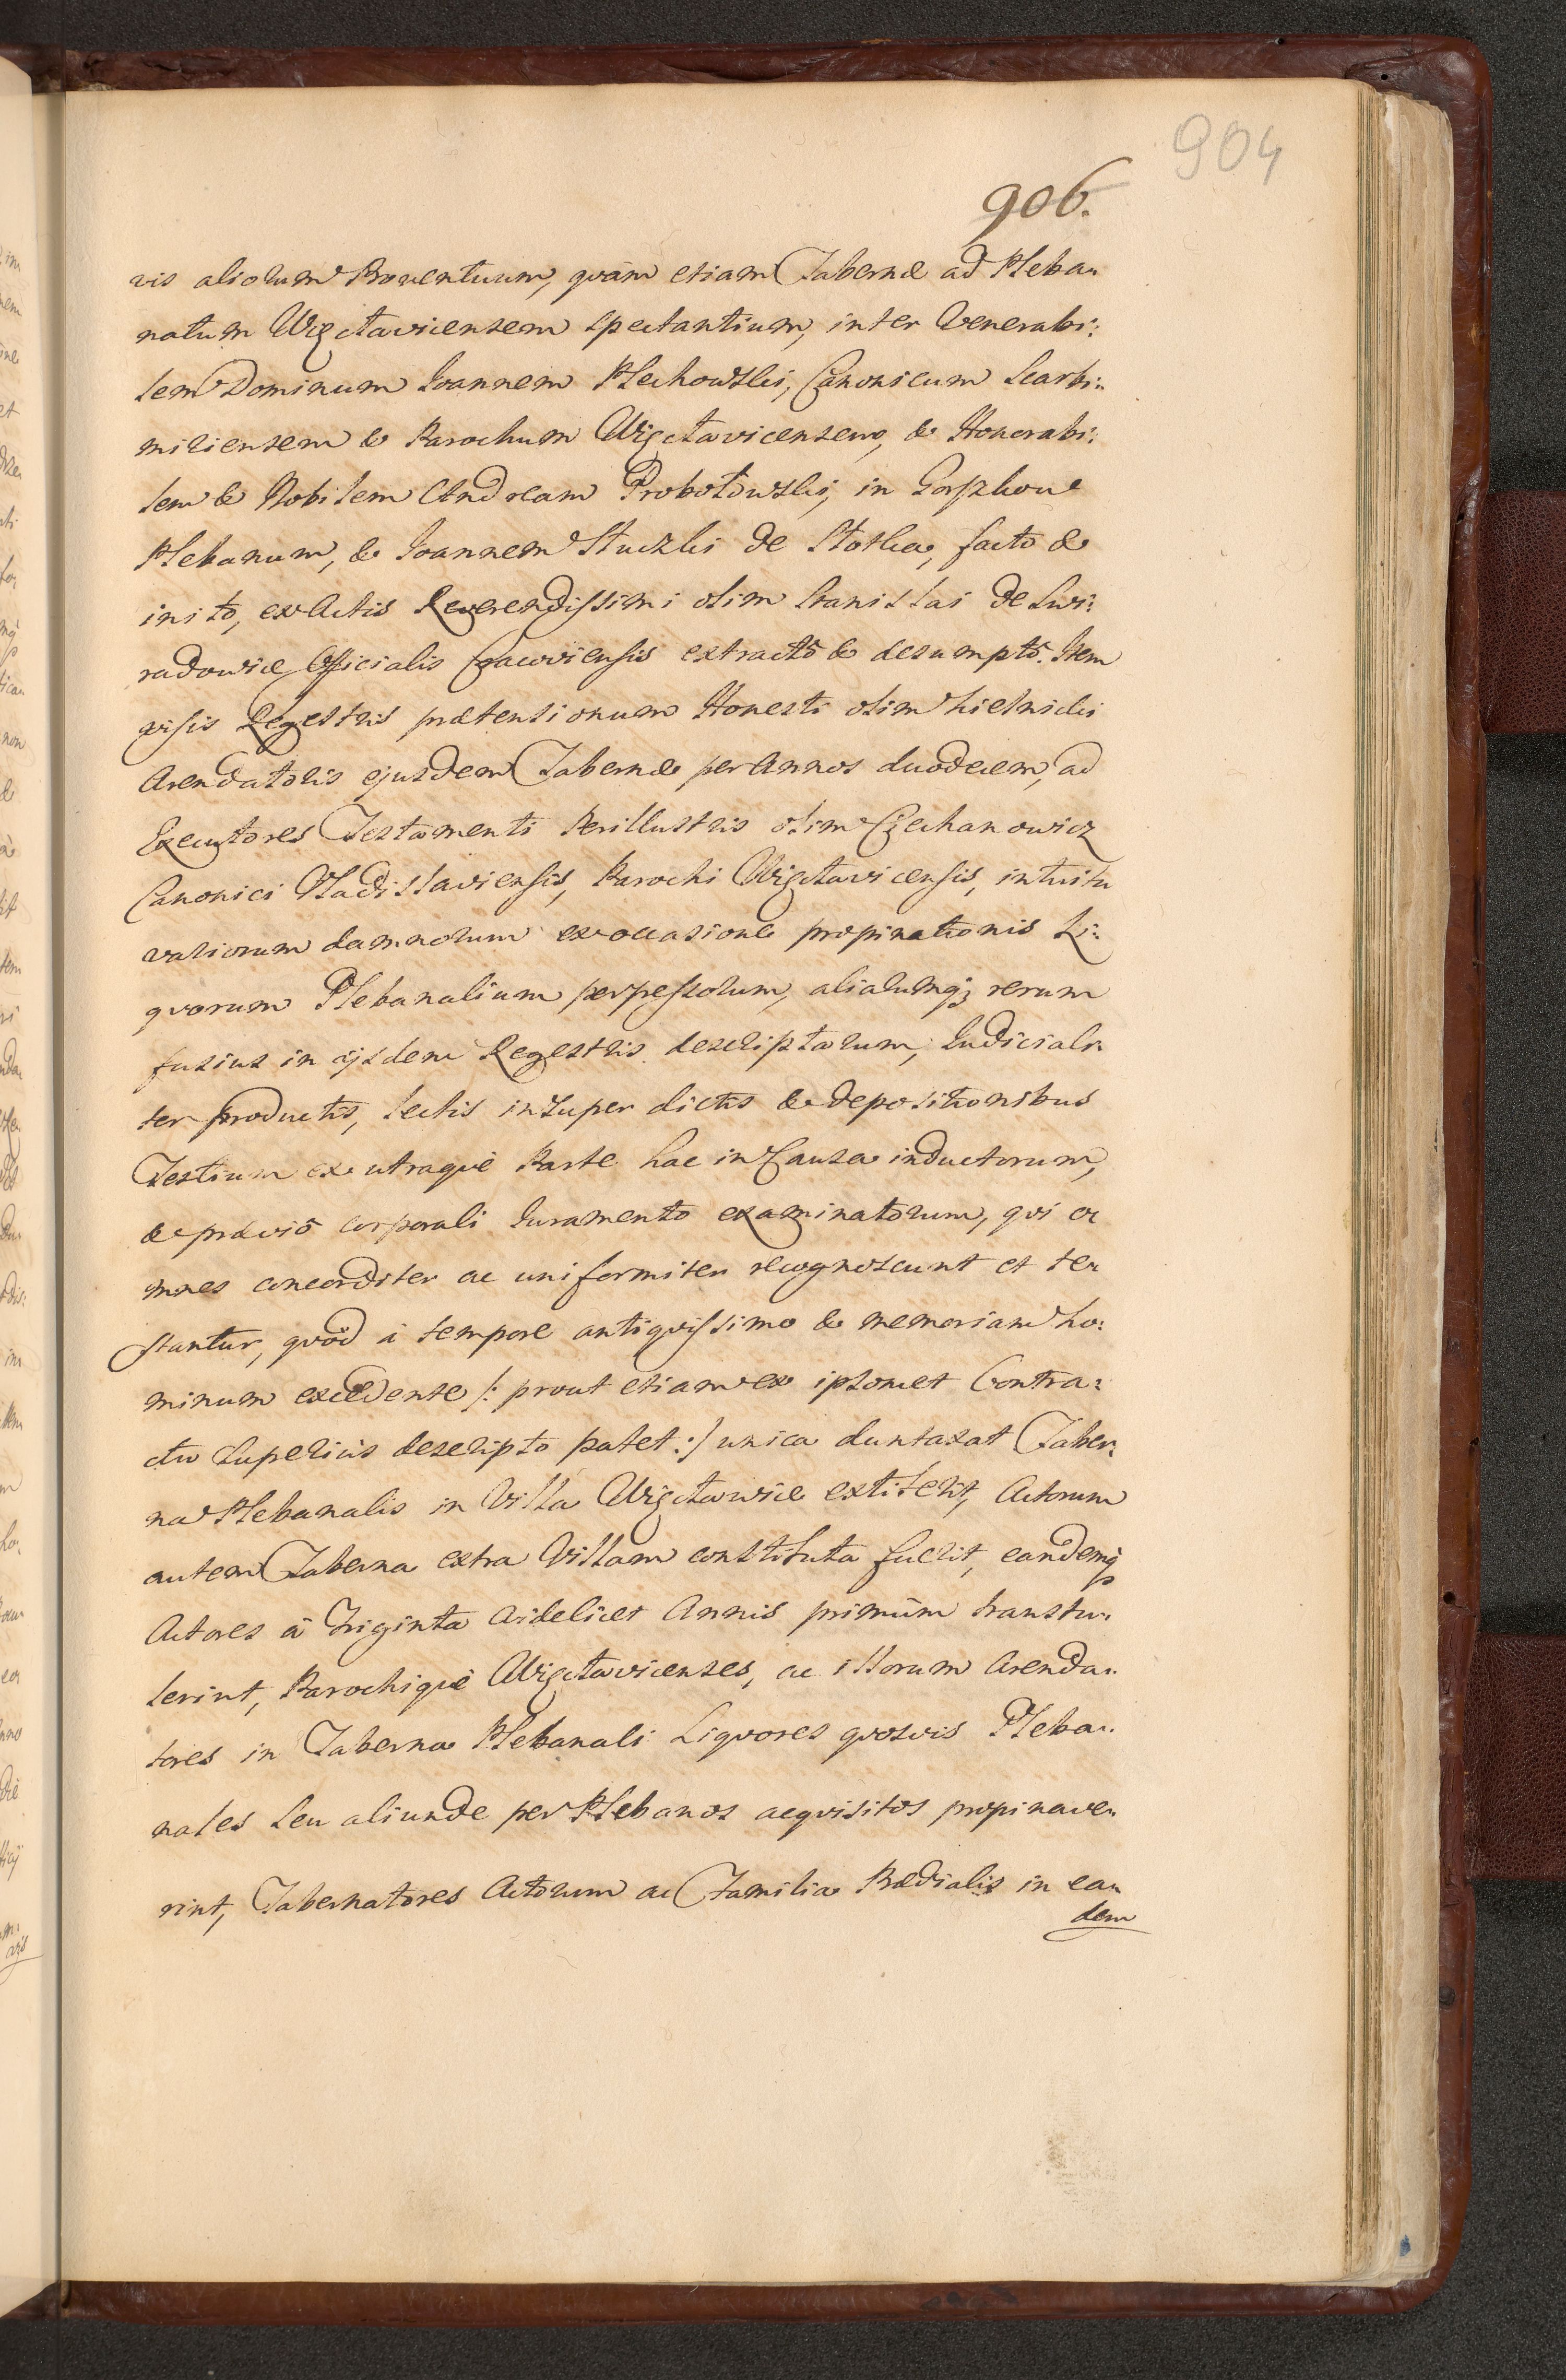 904
906.
vis aliorum Proventuum, quàm etiam Tabernæ ad Pleba-
natum Więctavicensem spectantium, inter Venerabi:
lem Dominum Joannem Plechowski, Canonicum Scarbi-
miriensem & Parochum Więctavicensem, & Honorabi:
lem & Nobilem Andream Probołowski, in Gorzkow
Plebanum, & Joannem Stuczki de Stotka, facto &
inito, ex Actis Reverendissimi olim Stanislai de Swi:
radowice Officialis Cracoviensis extractô & desumptô. Item
visis Regestris prætensionum Honesti olim Chielnicki
Arendatoris ejusdem Tabernæ per Annos duodecem, ad
Executores Testamenti Perillustris olim Ciechanowicz
Canonici Vladislaviensis, Parochi Więctavicensis, intuitu
variorum damnorum ex occasione propinationis Li:
quorum Plebanalium perpessorum, aliarumq; rerum
fusius in ijsdem Regestris descriptarum, Judiciali-
ter productis, lectis insuper dictis & depositionibus
Testium ex utraquè Parte hac in Causa inductorum,
& præviô corporali Juramento examinatorum, qui o-
mnes concorditer ac uniformiter recognoscunt et te-
stantur, quòd à tempore antiquissimo & memoriam ho:
minum excedente /: prout etiam ex ipsomet Contra:
ctu superiùs descripto patet :/ unica duntaxat Taber:
na Plebanalis in Villa Więctawice extiterit, Actorum
autem Taberna extra Villam constituta fuerit, eandemq;
Actores à Triginta videlicet Annis primùm transtu-
lerint, Parochiquè Więctavicenses, ac illorum Arenda-
tores in Taberna Plebanali Liquores quosvis Pleba-
nales seu aliunde per Plebanos acquisitos propinave-
rint, Tabernatores Actorum ac Familia Prædialis in ean-
dem